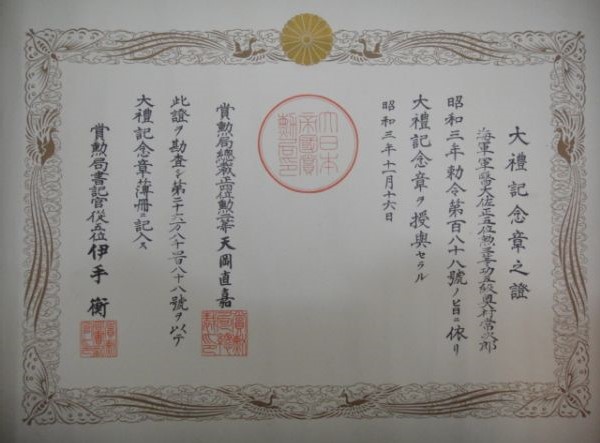 大禮記念章之證
海軍軍醫大佐正五位勲三等功五級奥村常次郎
昭和三年勅令第百八十八號ノ旨ニ依リ
大禮記念章ヲ授與セラル
昭和三年十一月十六日
大日本
帝國賞
勲局印
賞勲局總裁正四位勲二等天岡直嘉
此證ヲ勘査シ第二十六万八千百八十八號ヲ以テ
大禮記念章ノ簿冊ニ記入ス
賞勲局書記官従五位伊手衡